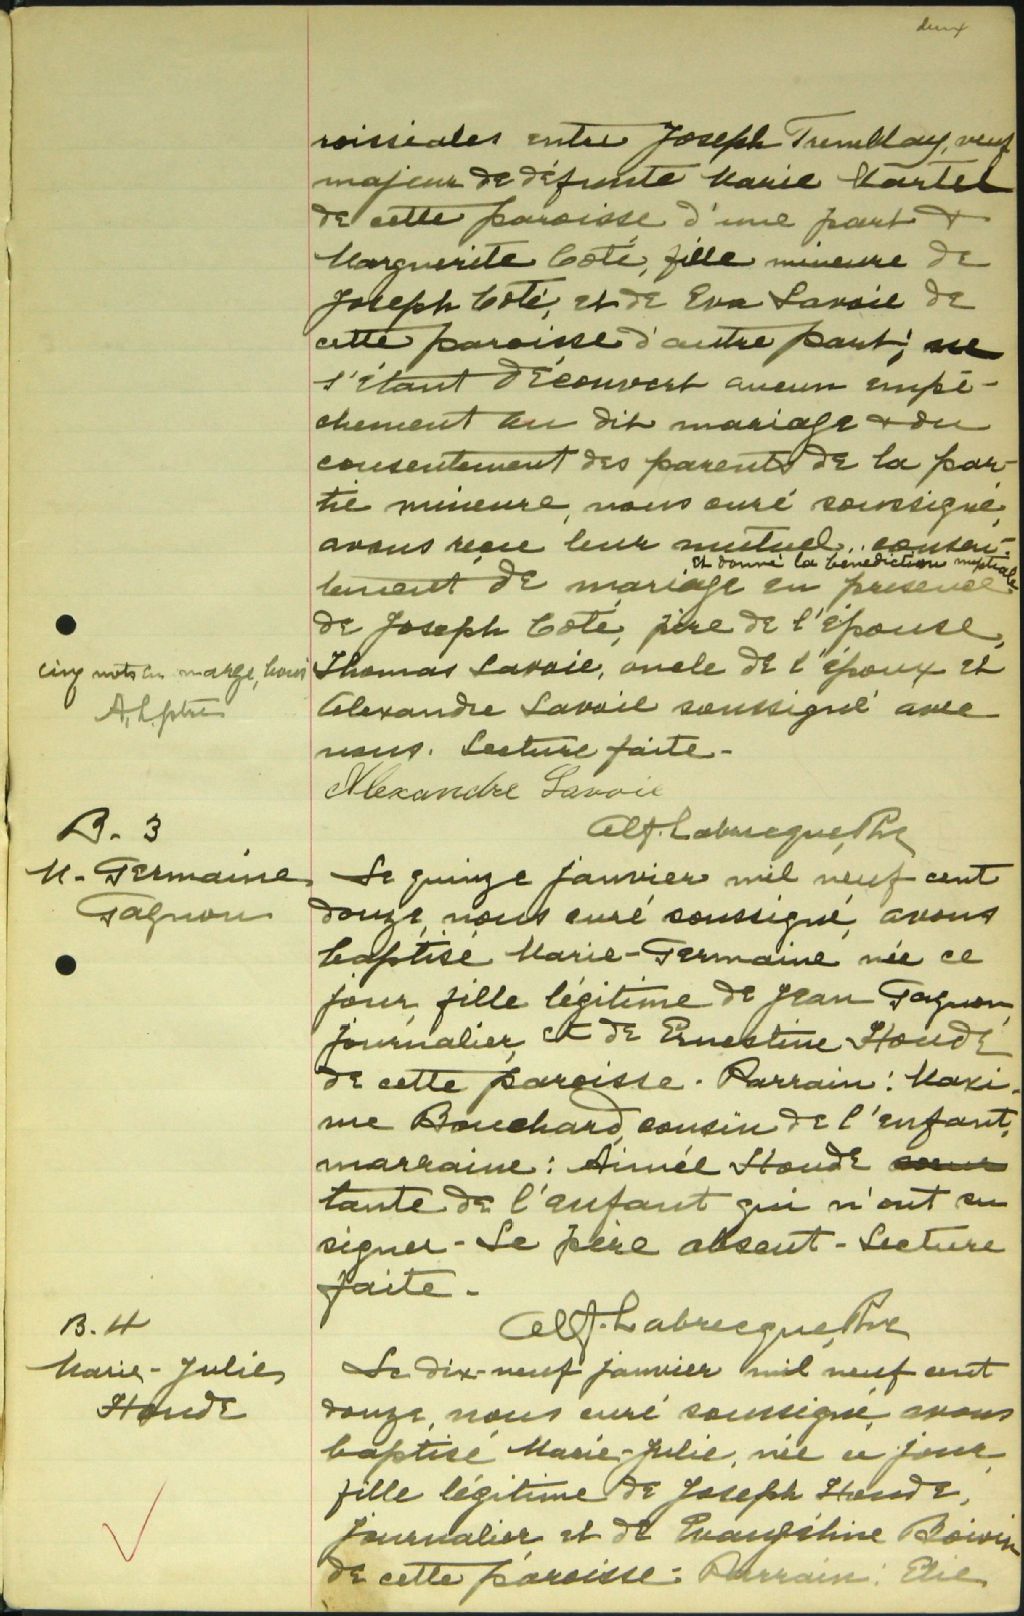 deux
roissiales entre Joseph Tremblay, veuf
majeur de défunte Marie Martel
de cette paroisse d'une part &
Marguerite Coté, fille mineure de
Joseph Coté, et de Eva Savoie de
cette paroisse d'autre part; ne
s'étant découvert aucun empê-
chement au dit mariage & du
consentement des parents de la par-
tie mineure, nous curé soussigné,
avons reçu leur mutuel consen-
et donné la bénédiction nuptiale
tement de mariage en présence
de Joseph Coté, père de l'épouse,
cinq mots en marge, bons
Thomas Savoie, oncle de l'époux et
A.L. ptre
Alexandre Savoie soussigné avec
nous. Lecture faite -
Alexandre Savoie
Alf. Labrecque, Ptre
B. 3
M.-Germaine
Gagnon
Le quinze janvier mil neuf cent
douze, nous curé soussigné, avons
baptisé Marie-Germaine née ce
jour, fille légitime de Jean Gagnon,
journalier, et de Ernestine Houde
de cette paroisse. Parrain: Maxi-
me Bouchard, cousin de l'enfant,
marraine: Aimée Houde
tante de l'enfant qui n'ont su
signer - Le père absent - Lecture
faite -
Alf. Labrecque, Ptre
B. 4
Marie-Julie
Houde
Le dix-neuf janvier mil neuf cent
douze, nous curé soussigné, avons
baptisé Marie-Julie, née ce jour,
fille légitime de Joseph Houde,
journalier et de Evangéline Boivin
de cette paroisse. Parrain: Elie